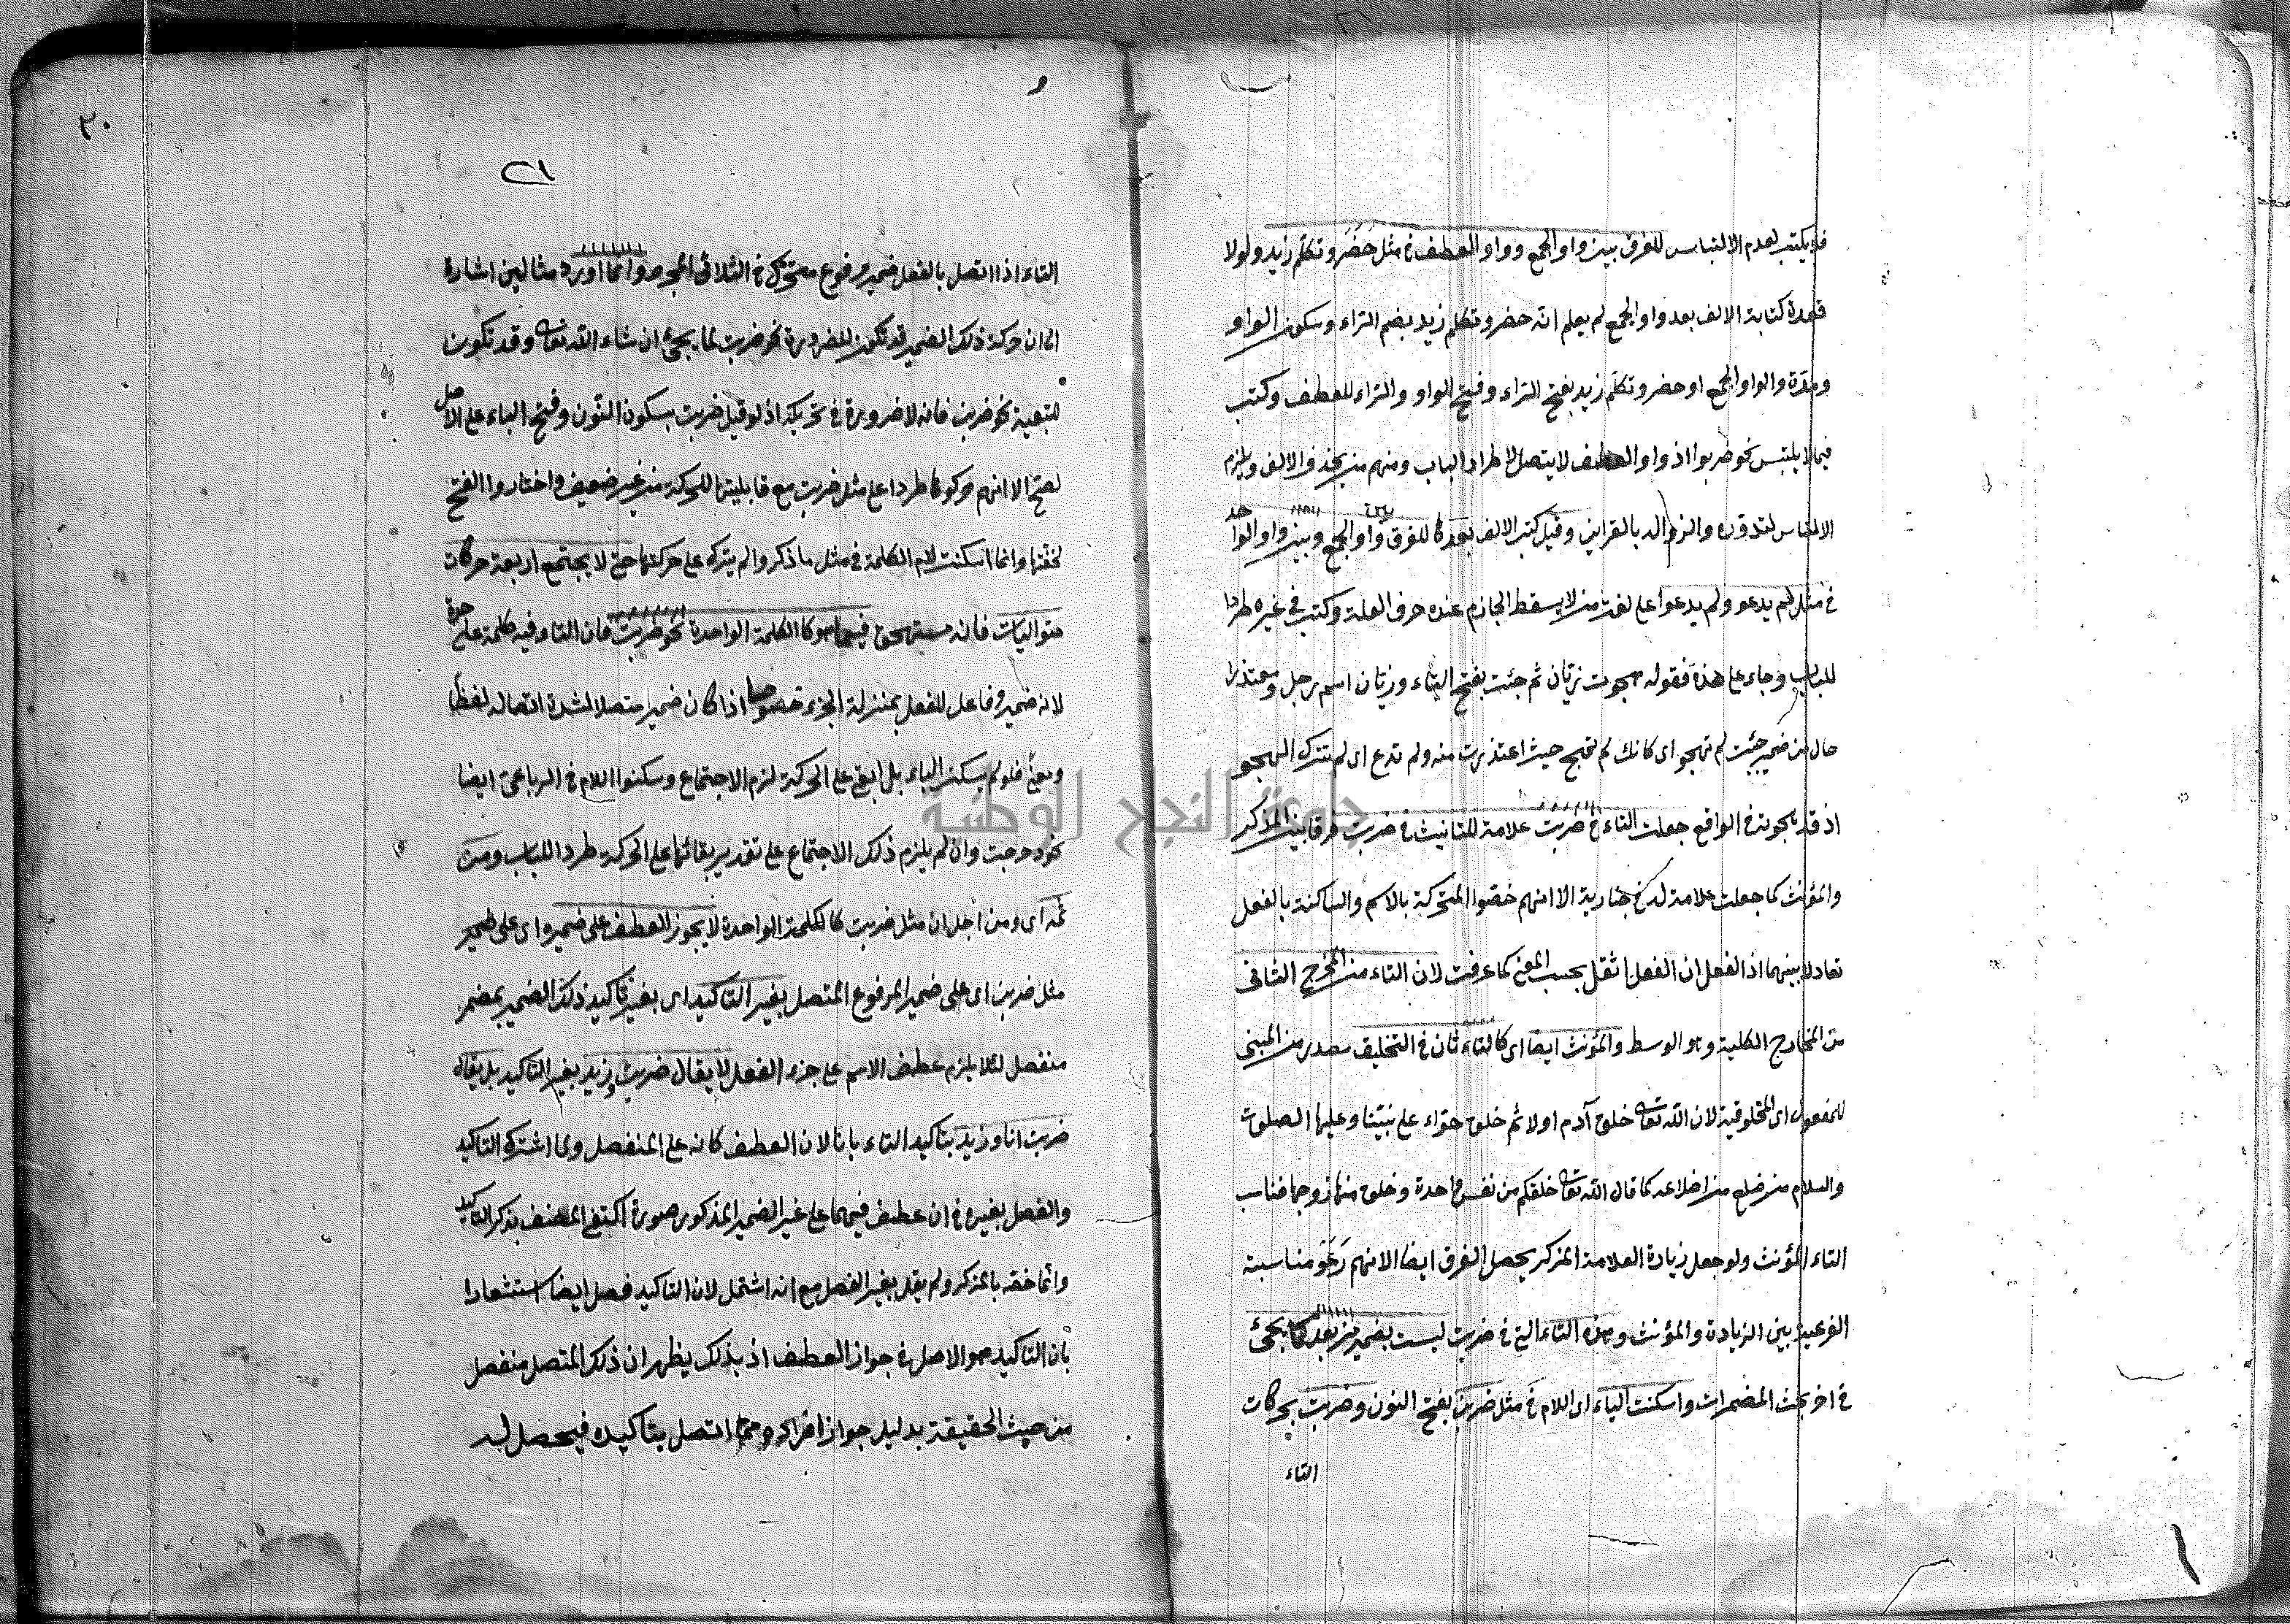 فلا يكتب لعدم الالتباس للفرق بين واو الجمع وواو العطف في مثل حَضَرَ وتكلّم زيد ولولا
قعدة كتابة الالف بعد واو الجمع لم يعلم انه حضروتكلم زيد بضم الراء وسكون الواو
والواو الجمع او حضر وتكلم زيد بفتح الراء وفتح الواو والراء للعطف وكتب
فيما لا يلتبس نحو ضربوا اذ واو العطف لا يتصل لاطراد الباب ومنهم من يحذف الالف ويلزم
الالتباس بالقراين وقيل كتب الالف بعدها للفرق واو الجمع وبين واو الواحد
في مثل لم يدعو ولم يدعوا على لغت من لا يسقط الجازم عنده حرف العلة وكتب في غيره طردا
للباب وجاء على هذه فقوله هجوت زبان ثم جئت بفتح التاء وزبان اسم رجل ومعتذرا
حال من ضمير جئت لم تهجو اى كانك لم تهج حيث اعتذرت منه ولم تدع اى لم تترك الهجو
اذ قد هجوته في الواقع جعلت التاء في ضربت علامة للتانيث في ضربت فرقا بين المذكر
والمؤنث كما جعلت علامة له في ضاربة الا انهم خصّوا المتحركة بالاسم والساكنة بالفعل
تعادلا بينهما اذ الفعل ان الفعل اثقل بحسب المعنى كما عرفت لان التاء من المخرج الثانى
من المخارج الكلية وهو الوسط والمؤنث ايضا اى كالتاء ثان في التخليق مصدر من المبنى
للمفعول اى المخلوقية لان الله تعالى خلق آدم اولا ثم خلق حوّاء على نبيّنا وعليها الصلوت
والسلام من ضلع من اضلاعه كما قال الله تعالى خلقكم من نفس واحدة وخلق منها زوجها فناسب
التاء المؤنث ولو جعل زيادة العلامة المذكر يحصل الفرق ايضا الا انهم رَعَوْ مناسبة
الفرعية بين الزيادة والمؤنث وهذه التاء التى في ضربت ليست بضمير بعد كما يجئ
في اخر بحث المضمرات واسكنت الباء اى اللام في مثل ضربن بفتح النون وضربت بحركات
التاء
٣٠
٢١
التاء اذا اتصل بالفعل ضمير مرفوع متحرّك في الثلاثى المجرد وانما اورد مثالين اشارة
الى ان حركة ذلك الضمير قد تكون للضرورة نحو ضربت لما يجئ ان شاء الله تعالى وقد تكون
للتبعية نحو ضربن فانه لا ضرورة في تحريكه اذ لو قيل ضربت بسكون النّون وفتح الباء على الاصل
لصحّ الا انهم حركوها طردا على مثل ضربت مع قابليتها للحركة من غير ضعيف واختاروا الفتح
لخفّتها وانما اسكنت لام الكلمة في مثل ما ذكر ولم يترك على حركتها حتى لا يجتمع اربعة حركات
متواليات فانه مستهجن فيما هو كالكلمة الواحدة نحو ضربت فان التاء فيه كلمة على حدة
لانه ضمير وفاعل للفعل بمنزلة الجزء خصوصا اذا كان ضميرا متصلا لشدة اتصاله لفظا
ومعنى فلو لم يسكن الباء بل ابقى على الحركة لزم الاجتماع وسكنوا اللام في الرباعى ايضا
نحو دحرجت وان لم يلزم ذلك الاجتماع على تقدير بقائها على الحركة طردا للباب ومن
ثمه اى ومن اجل ان مثل ضربت كالكلمة الواحدة لا يجوز العطف على ضميره اى على ضمير
مثل ضربن اى على ضمير المرفوع المتصل بغير التاكيد اى بغير تاكيد ذلك الضمير بمضمر
منفصل لئلا يلزم عطف الاسم على جزء الفعل لا يقال ضربت وزيد بغير التاكيد بل يقال
ضربت انا وزيد بتاكيد التاء بانا لان العطف كانه على المنفصل ولما اشترك التاكيد
والفصل بغيره في ان عطف فيهما على غير الضمير المذكور صورة اكتفى المصنف بذكر التاكيد
وانّما خصّه بالذكر ولم يقل بغير الفصل مع انه اشتمل لان التاكيد فصل ايضا استشعارا
بان التاكيد هو الاصل في جواز العطف اذ بذلك يظهر ان ذلك المتصل منفصل
من حيث الحقيقة بدليل جواز افراده مما اتصل بتاكيده فيحصل له
جامعة النجاح الوطنية